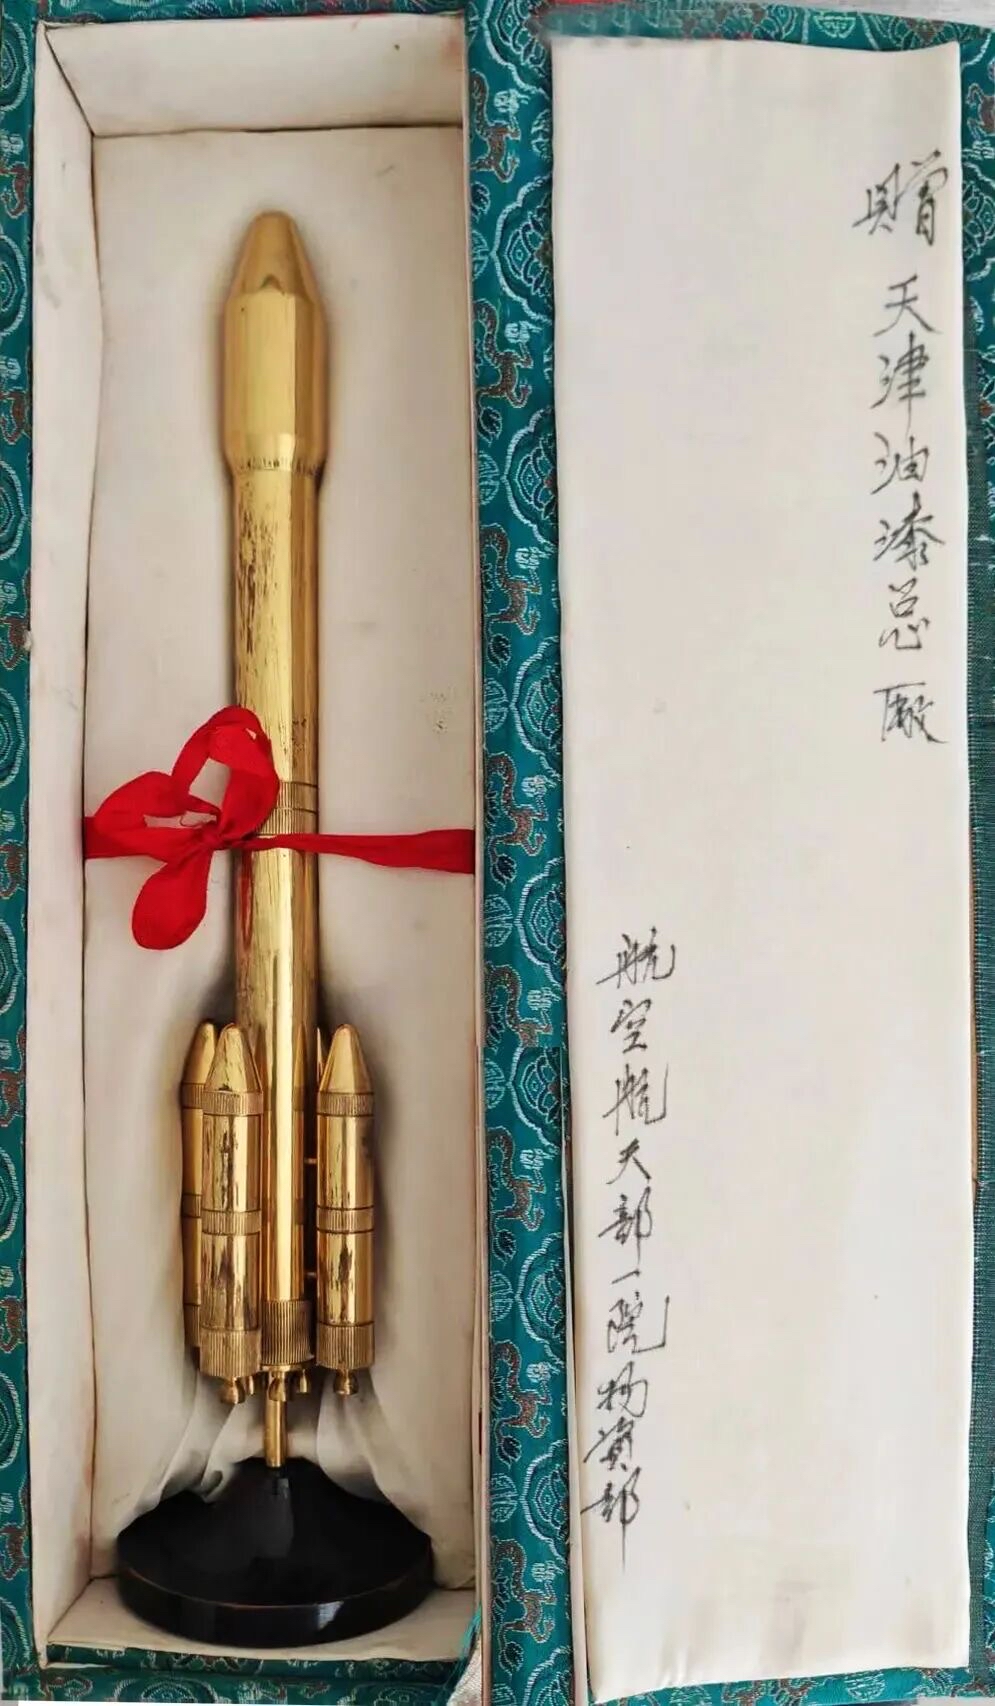 赠 天津油漆总厰
航空航天部一院物资部